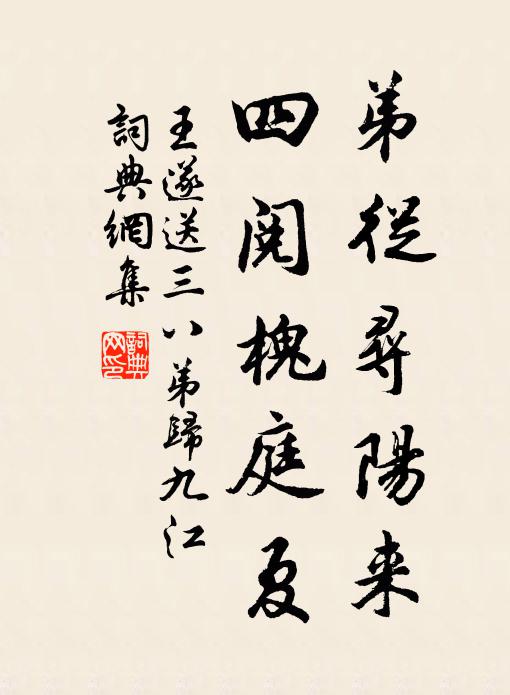 弟從尋陽来
四閱槐庭夏
王遂送三八弟歸九江
詞典網集
詞典
网印